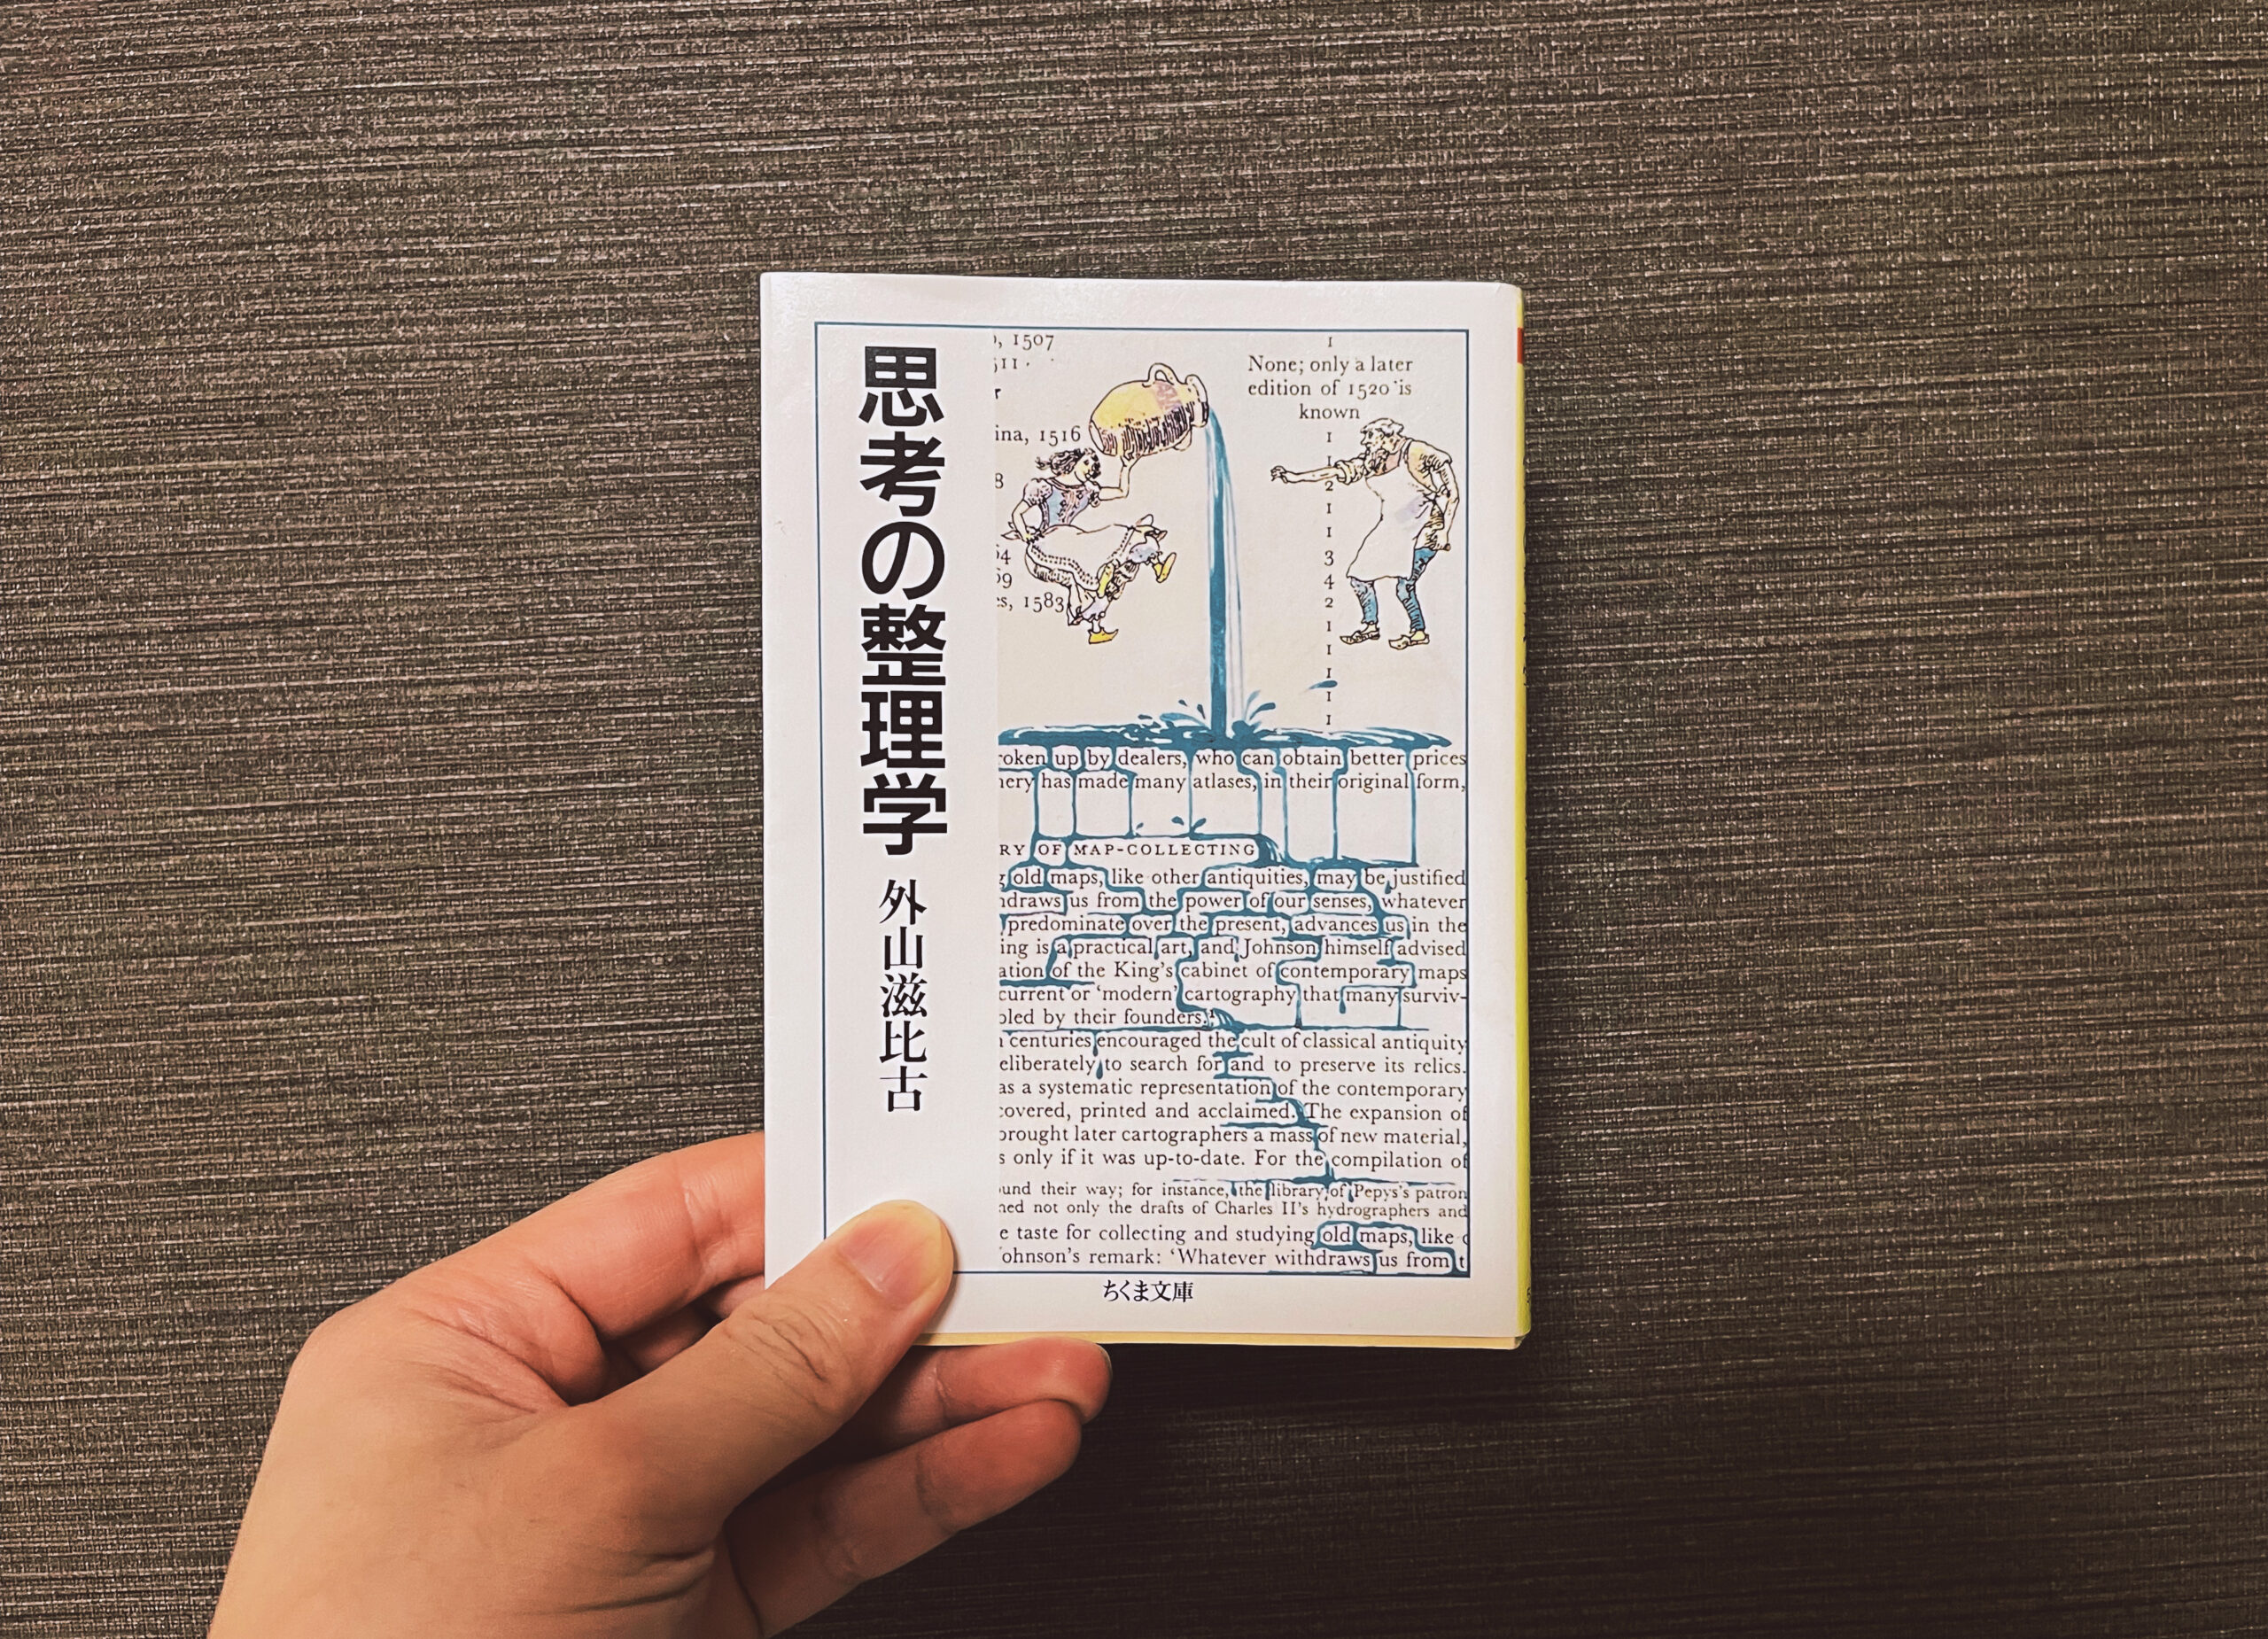 思考の整理学
外山滋比古
, 1507
511.
ina, 1516
8
64
69
es, 1583
1
None; only a later
edition of 1520 is
known
1
1
2
1
1
3
4
2
1
1
1
1
1
roken up by dealers, who can obtain better prices
nery has made many atlases, in their original form,
RY OF MAP-COLLECTING
g old maps, like other antiquities, may be justified
hdraws us from the power of our senses, whatever
predominate over the present, advances us in the
ing is a practical art, and Johnson himself advised
ation of the King's cabinet of contemporary maps
current or ‘modern’ cartography that many surviv-
bled by their founders.¹
n centuries encouraged the cult of classical antiquity
eliberately to search for and to preserve its relics.
as a systematic representation of the contemporary
covered, printed and acclaimed. The expansion of
brought later cartographers a mass of new material,
s only if it was up-to-date. For the compilation of
ound their way; for instance, the library of Pepys's patron
ned not only the drafts of Charles II's hydrographers and
e taste for collecting and studying old maps, like
ohnson's remark: ‘Whatever withdraws us from t
ちくま文庫